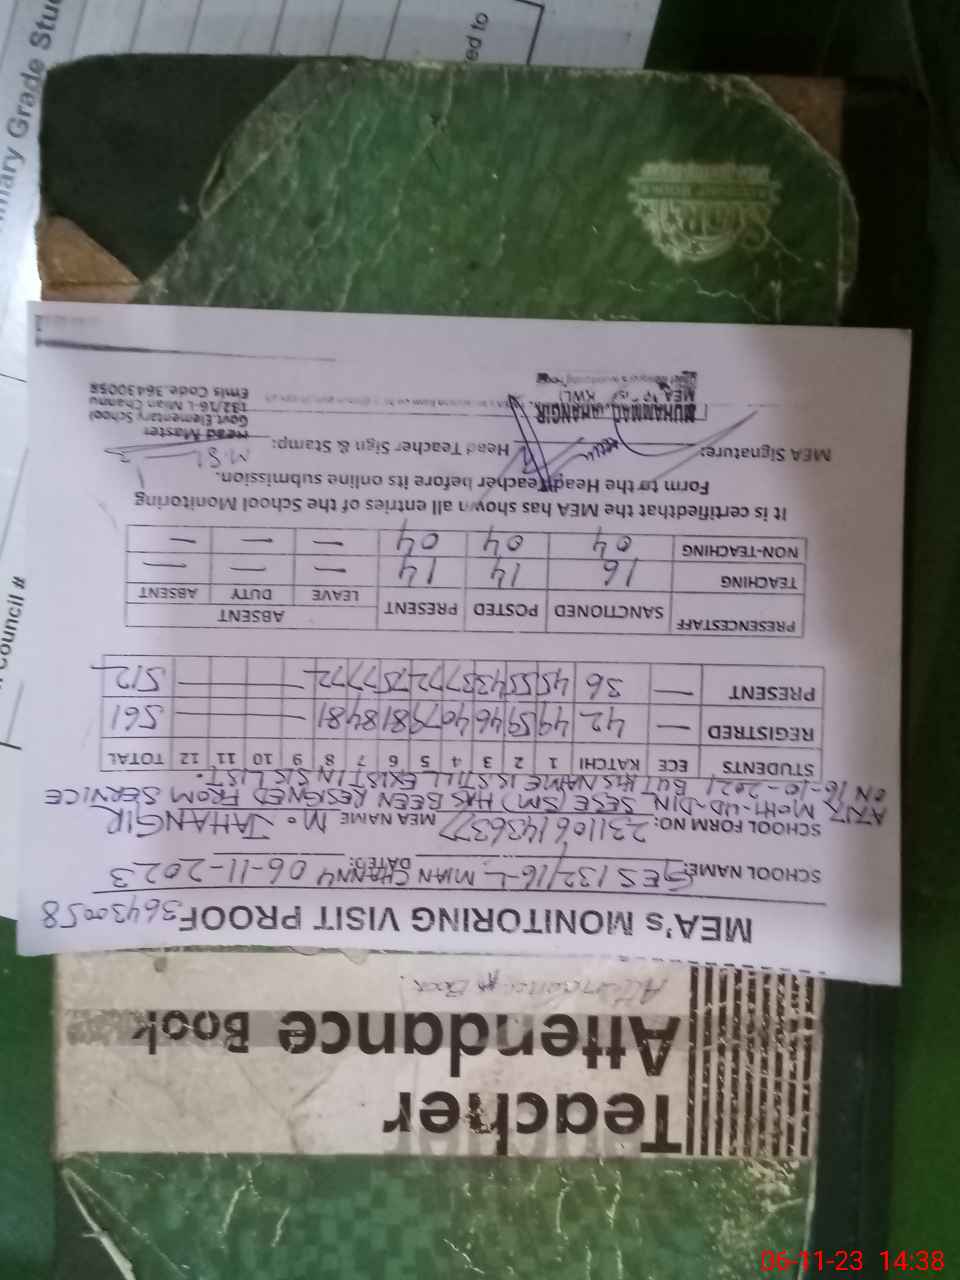 Teacher
Attendance Book
Attendance Book
MEA's MONITORING VISIT PROOF 36430058
SCHOOL NAME: GES 132/16-L MIAN CHANNU DATE: 06-11-2023
SCHOOL FORM NO: 2311061436377 MEA NAME M. JAHANGIR
AZIZ MOHI-UD-DIN SESE (SM) HAS BEEN RESIGNED FROM SERVICE
ON 16-10-2021 BUT HIS NAME IS STILL EXIST IN SIS LIST.
STUDENTS ECE KATCHI 1 2 3 4 5 6 7 8 9 10 11 12 TOTAL
REGISTRED — 42 49 59 46 40 79 81 84 81 — — — — 561
PRESENT — 36 45 55 43 37 72 75 77 72 — — — — 512
PRESENCESTAFF SANCTIONED POSTED PRESENT ABSENT
LEAVE DUTY ABSENT
TEACHING 16 14 14 — — —
NON-TEACHING 04 04 04 — — —
It is certifiedthat the MEA has shown all entries of the School Monitoring
Form to the Head Teacher before its online submission.
MEA Signature: Head Teacher Sign & Stamp:
MUHAMMAD JAHANGIR
MEA KWL)
Head Master
Govt.Elementary School
132/16-L Mian Channu
Emis Code.36430058
mary Grade Stu
ed to
Council #
06-11-23 14:38